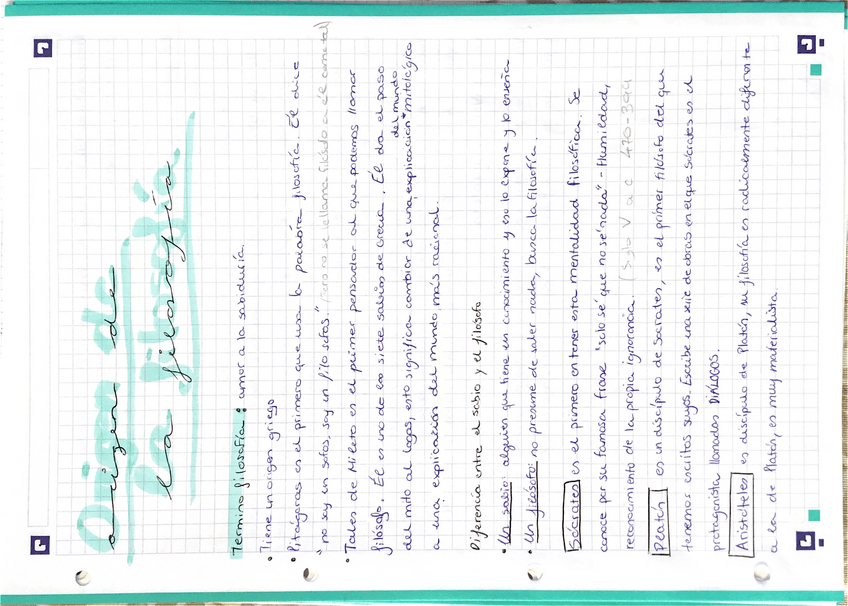 Origen de
la filosofía
origen de
la filosofía.
Término filosofía: amor a la sabiduría.
• Tiene un origen griego
• Pitágoras es el primero que usa la palabra filosofía. Él dice
"no soy un sofos, soy un filo sofos." (pero no se le llama filósofo a él como tal)
• Tales de Mileto es el primer pensador al que podemos llamar
filósofo. Él es uno de los siete sabios de Grecia. Él da el paso
del mundo
del mito al logos, esto significa cambiar de una explicación mitológica
a una explicación del mundo más racional.
Diferencia entre el sabio y el filósofo
• Un sabio: alguien que tiene un conocimiento y eso lo expone y lo enseña
• Un filósofo: no presume de saber nada, busca la filosofía.
Sócrates es el primero en tener esta mentalidad filosófica. Se
conoce por su famosa frase "solo sé que no sé nada" - Humildad,
reconocimiento de la propia ignorancia. (Siglo V a C 470-399)
Platón es un discípulo de Sócrates, es el primer filósofo del que
tenemos escritos suyos. Escribe una serie de obras en el que Sócrates es el
protagonista llamadas DIÁLOGOS.
Aristóteles es discípulo de Platón, su filosofía es radicalmente diferente
a la de Platón, es muy materialista.